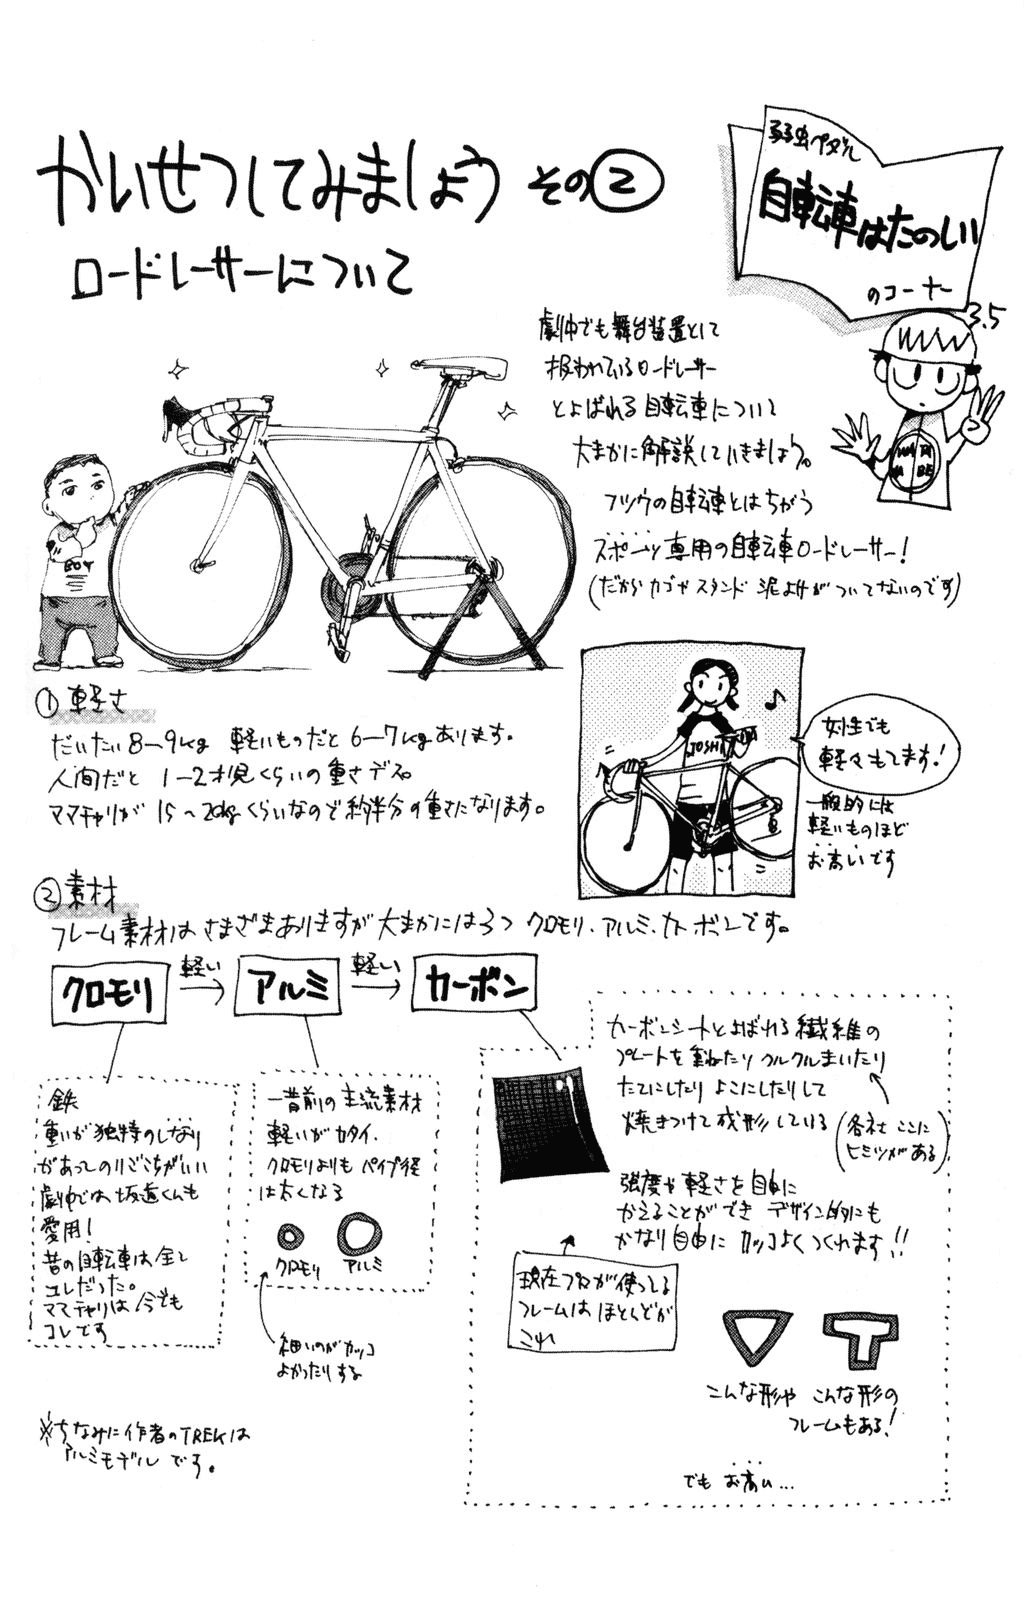 かいせつしてみましょう その②
ロードレーサーについて
弱虫ペダル
自転車はたのしい
のコーナー
3.5
劇中でも舞台装置として
扱われているロードレーサー
とよばれる自転車について
大まかに解説していきましょう。
フツウの自転車とはちがう
スポーツ専用の自転車ロードレーサー!
(だからカゴやスタンド 泥よけがついてないのです)
WA TA
NA BE
BOY
①軽さ
だいたい8―9kg 軽いものだと6―7kgあります。
人間だと 1―2才児くらいの重さデス。
ママチャリが 15〜20kgくらいなので約半分の重さになります。
TOSHI
女性でも
軽々もてます!
一般的には
軽いものほど
お高いです
②素材
フレーム素材はさまざまありますが大まかには3つ クロモリ、アルミ、カーボンです。
クロモリ
軽い
アルミ
軽い
カーボン
鉄
重いが独特のしなり
があってのりごこちがいい
劇中では坂道くんも
愛用!
昔の自転車は全て
コレだった。
ママチャリは今でも
コレです
一昔前の主流素材
軽いがカタイ.
クロモリよりもパイプ径
は太くなる
クロモリ
アルミ
細いのがカッコ
よかったりする
カーボンシートとよばれる繊維の
プレートを重ねたりクルクルまいたり
たてにしたりよこにしたりして
焼きつけて成形している
(各社ここに
ヒミツがある)
強度や軽さを自由に
かえることができ デザイン的にも
かなり自由に カッコよくつくれます!!
現在プロが使ってる
フレームはほとんどが
これ
こんな形や こんな形の
フレームもある!
でも お高い…
※ちなみに作者のTREKは
アルミモデルです。